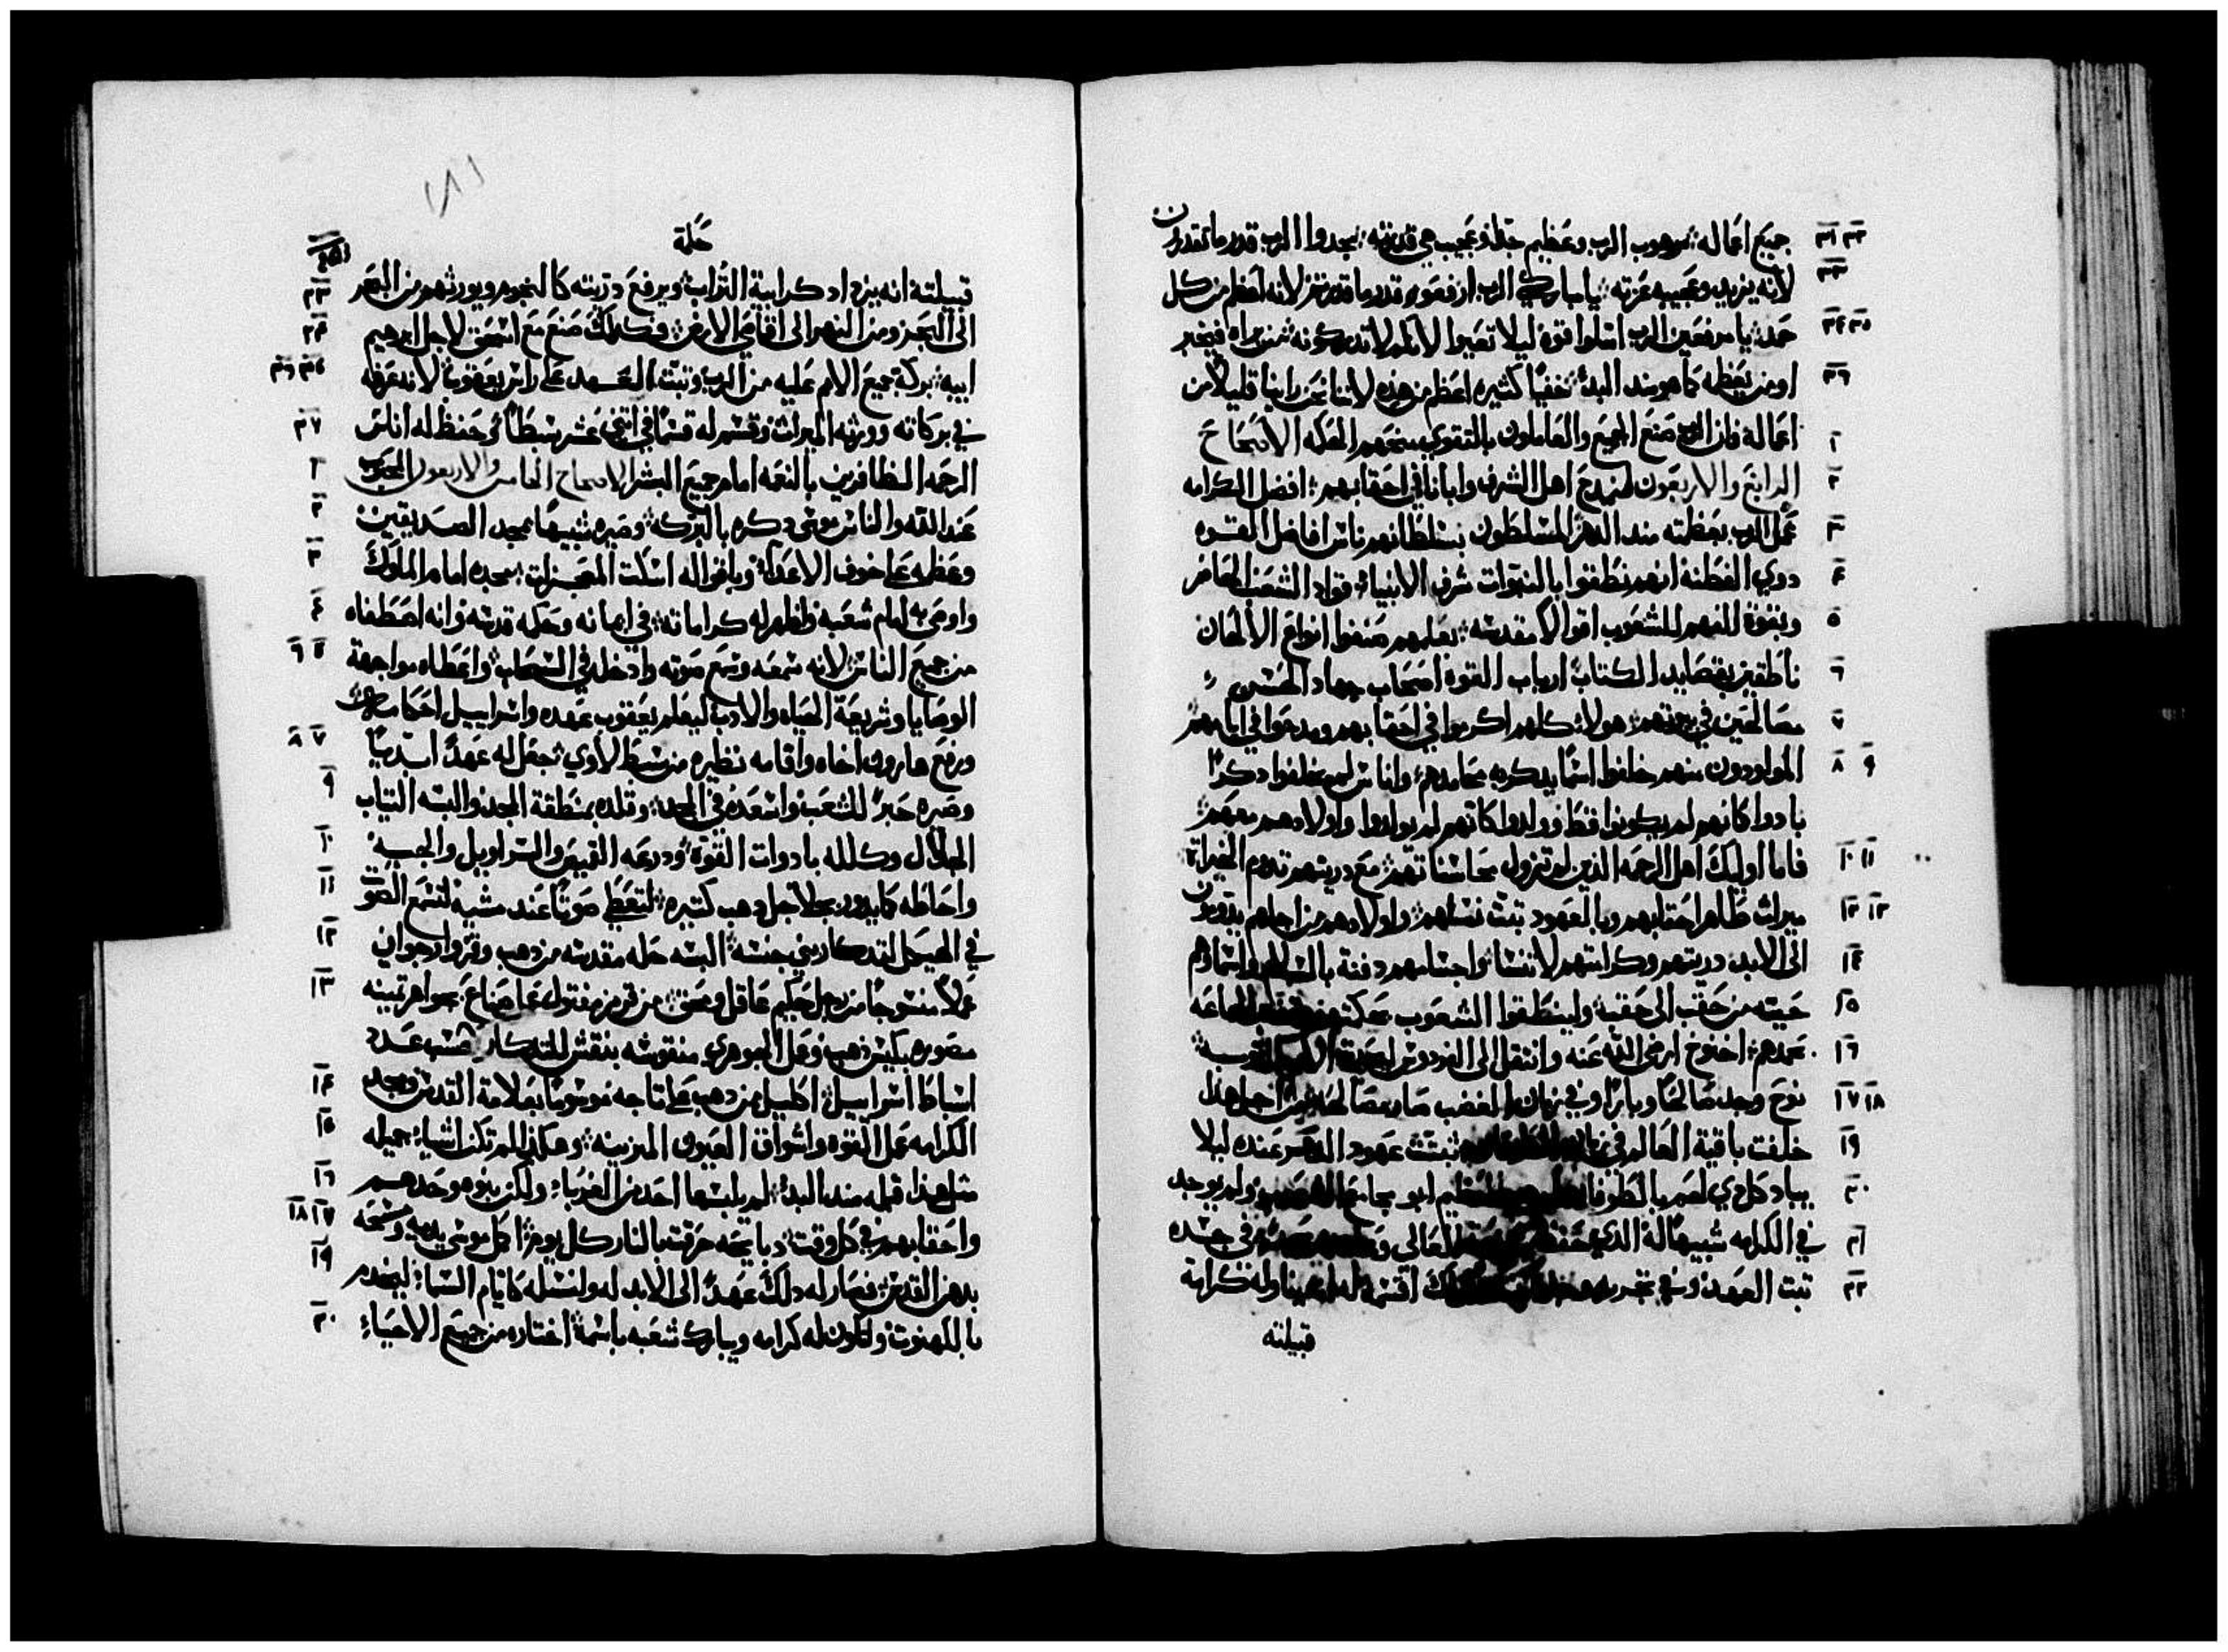 جميع اعماله مرهوب الرب وعظيم جدًا وعجيب هي قدرته مجدوا الرب قدر ما تقدرون
لانه يزيد وعجيبه عزته يا مباركي الرب ارفعوه قدر ما تقدرون لانه اعظم من كل
حمد يا مرفعين الرب امتلوا قوة ليلا تعيوا لانكم لا تدركونه من يراه فيخبر
او من يعظمه كما هو منذ البدء خفيًا كثيره اعظم من هذه لاننا نحن راينا قليلاً من
اعماله فان الرب صنع الجميع والعاملون بالتقوي منحهم الحكمه الاصحاح
الرابع والاربعون لنمدح اهل الشرف وابانا في احقابهم افضل الكرامه
عمل الرب بعظمته منذ الدهر المسلطون بسلطانهم ناس افاضل القوه
دوي الفطنه انهم نطقوا بالنبوات شرف الانبياء قواد الشعب الحاضر
وبقوة الفهم للشعوب اقوالاً مقدسه بعلمهم صنعوا انواع الالحان
ناطقين بقصايد الكتاب ارباب القوه اصحاب جهاد الحسن
مصالحين في بيوتهم هولاء كلهم اكرموا في احقابهم ومدحوا في ايامهم
المولودون منهم خلفوا اسمًا يدكر به محامدهم واناس لم يخلفوا دكرًا
بادوا كانهم لم يكونوا قط وولدوا كانهم لم يولدوا واولادهم معهم
فاما اوليك اهل الرحمه الذين لم تزول محاسناتهم مع دريتهم تدوم الخيراة
ميراث طاهر احقابهم وبالعهود تبت نسلهم واولادهم من اجلهم يدومون
الى الابد دريتهم وكرامتهم لا تنسا واجسامهم دفنة بالسلام واسماوهم
حييه من حقب الى حقب ولينطقوا الشعوب بحكمتهم الجماعه
بحمدهم اخنوخ ارضى الله عنه وانتقل الى الفردوس ليعطي الامم التوبه
نوح وجد صالحًا وبارًا وفي زمان الغضب صار مصالحه من اجل هذا
خلفت باقية العالم في تبتت عهود الدهر عنده ليلا
يباد كل دي لحم بالطوفان العظيم ابو جامع الشعوب ولم يوجد
في الكرامه شبيهًا له الذي حفظ العالى في جسده
تبت العهد وفي تجربه اقسم له كرامة
قبيلته
حكمة
قبيلته انه يزداد كرابية التراب ويرفع دريته كالنجوم ويورثهم من البحر
الى البحر ومن النهر الى اقاصي الارض وكدلك صنع مع اسحق لاجل ابرهيم
ابيه بركة جميع الامم عليه من الرب وتبت العهد على راس يعقوب لانه عرفه
في بركاته وورثه الميراث وقسم له قسمًا في اتني عشر سبطًا وحفظ له اناس
الرحمه الظافرين بالنعمه امام جميع البشر الاصحاح الخامس والاربعون المحبوب
عند الله والناس موسى دكره بالبركه وصيره شبيهًا بمجد الصديقين
وعظمه على خوف الاعداء وباقواله اسكت المعجزات مجده امام الملوك
واوصى به امام شعبه واظهر له كراماته في ايمانه وحكمه قدسه وانه اصطفاه
من جميع الناس لانه سمعه وسمع صوته وادخله في السحاب واعطاه مواجهة
الوصايا وشريعة الحياه والادب ليعلم يعقوب عهده واسراييل احكامه
ورفع هارون اخاه واقامه نظيره من سبط لاوي جعل له عهدًا ابديًا
وصيره حبرًا للشعب واسعده في المجد وقلده بمنطقة المجد والبسه التياب
الجلال وكلله بادوات القوة ودرعه القميص والسراويل والجبه
واحاطه كما يدور بجلاجل دهب كتيره لتعطي صوتًا عند مشيه لتسمع الصوت
في الهيكل لتدكار بني جنسه البسه حله مقدسه من دهب وقز وارجوان
عملاً منسوجًا من رجل حكيم عاقل ومحق من قرمز مفتول عمل صناع بجواهر تمينه
مصوره بكبس ذهب وعمل الجوهري منقوشه بنقش للتدكار حسب عدد
اسباط اسراييل اكليل من دهب على تاجه موسومًا بعلامة القدس ومجد
الكرامه عمل القوه واشواق العيون المزينه وهكذي لم تكن اشياء جميله
مثل هذا قبله منذ البدء لم يلبسها احد من الغرباء ولكن بنوه وحدهم
واحقابهم في كل وقت دبايحه حرقت بالنار كل يوم اكمل موسى يديه ومسحه
بدهن القدس فصار له دلك عهدًا الى الابد له ولنسله كايام السماء ليخدم
بالكهنوت ولتكون له كرامه ويبارك شعبه باسمه اختاره من جميع الاحياء